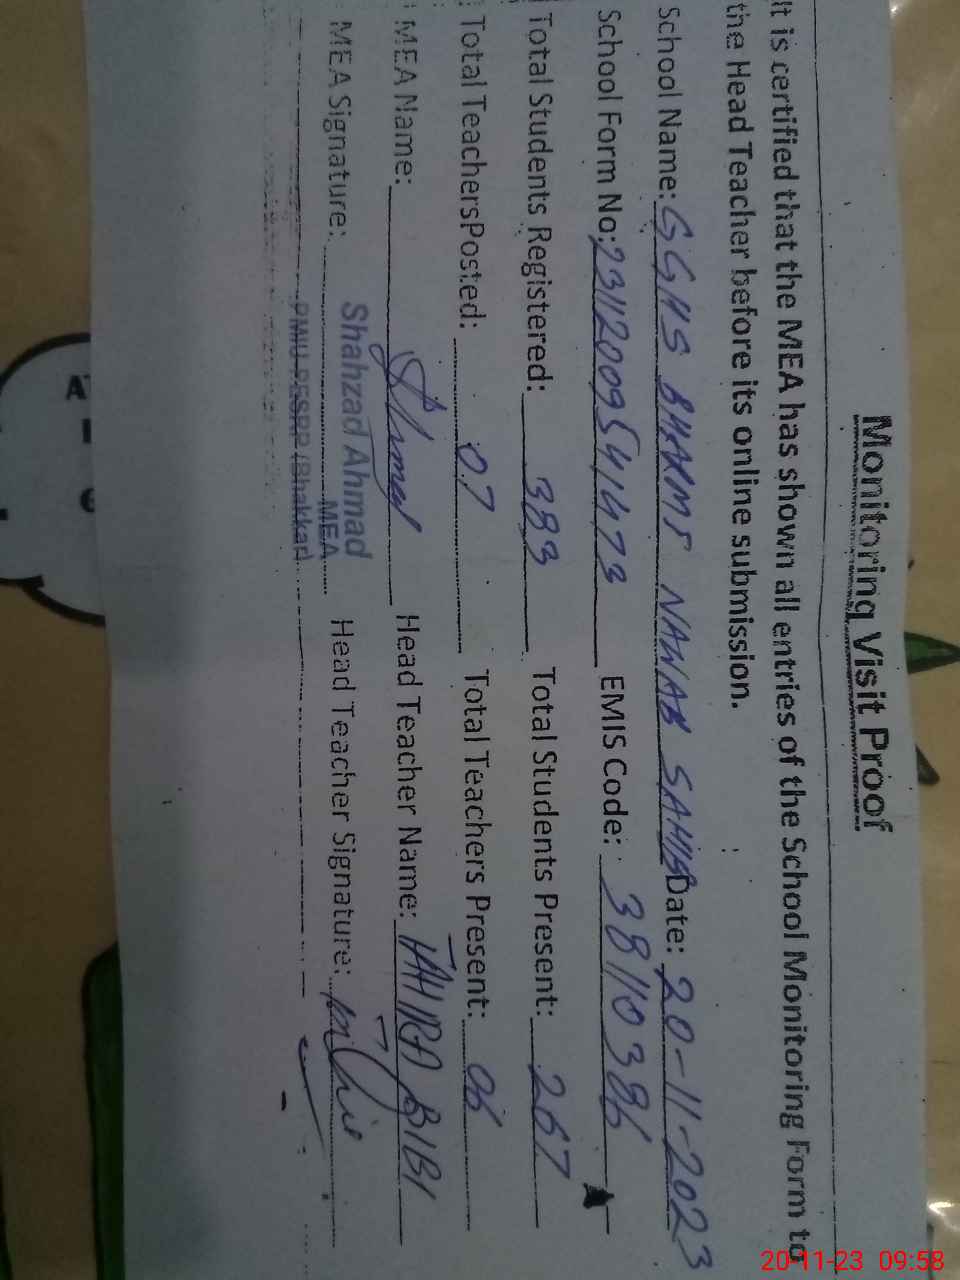 Monitoring Visit Proof
It is certified that the MEA has shown all entries of the School Monitoring Form to
the Head Teacher before its online submission.
School Name: GGHS BHAKMI NAWAB SAHIB Date: 20-11-2023
School Form No: 23112009541473 EMIS Code: 38110386
Total Students Registered: 383 Total Students Present: 267
Total TeachersPosted: 07 Total Teachers Present: 06
MEA Name: Ahmad Head Teacher Name: TAHIRA BIBI
MEA Signature: Head Teacher Signature:
Shahzad Ahmad
MEA
PMIU-PESRP (Bhakkar)
20-11-23 09:58